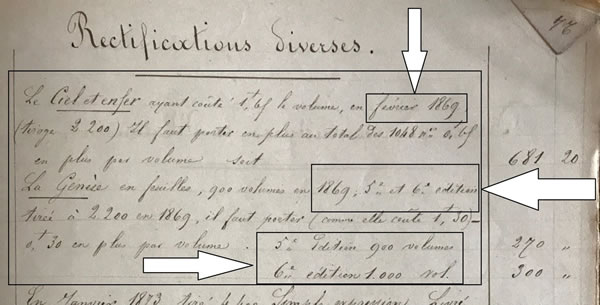 Rectifications diverses.
Le Ciel et enfer ayant coûté 1,f 65 le volume, en février 1869
(tirage 2.200) Il faut porter en plus au total des 1048 nos 0,f 65
en plus par volume soit 681 20
La Genèse en feuilles, 900 volumes en 1869, 5me et 6me edition
tirée à 2.200 en 1869, il faut porter (comme elle coûte 1,f 30)-
0,f 30 en plus par volume. 5me Edition 900 volumes 270 "
6me edition 1.000 vol. 300 "
En Janvier 1873 tiré